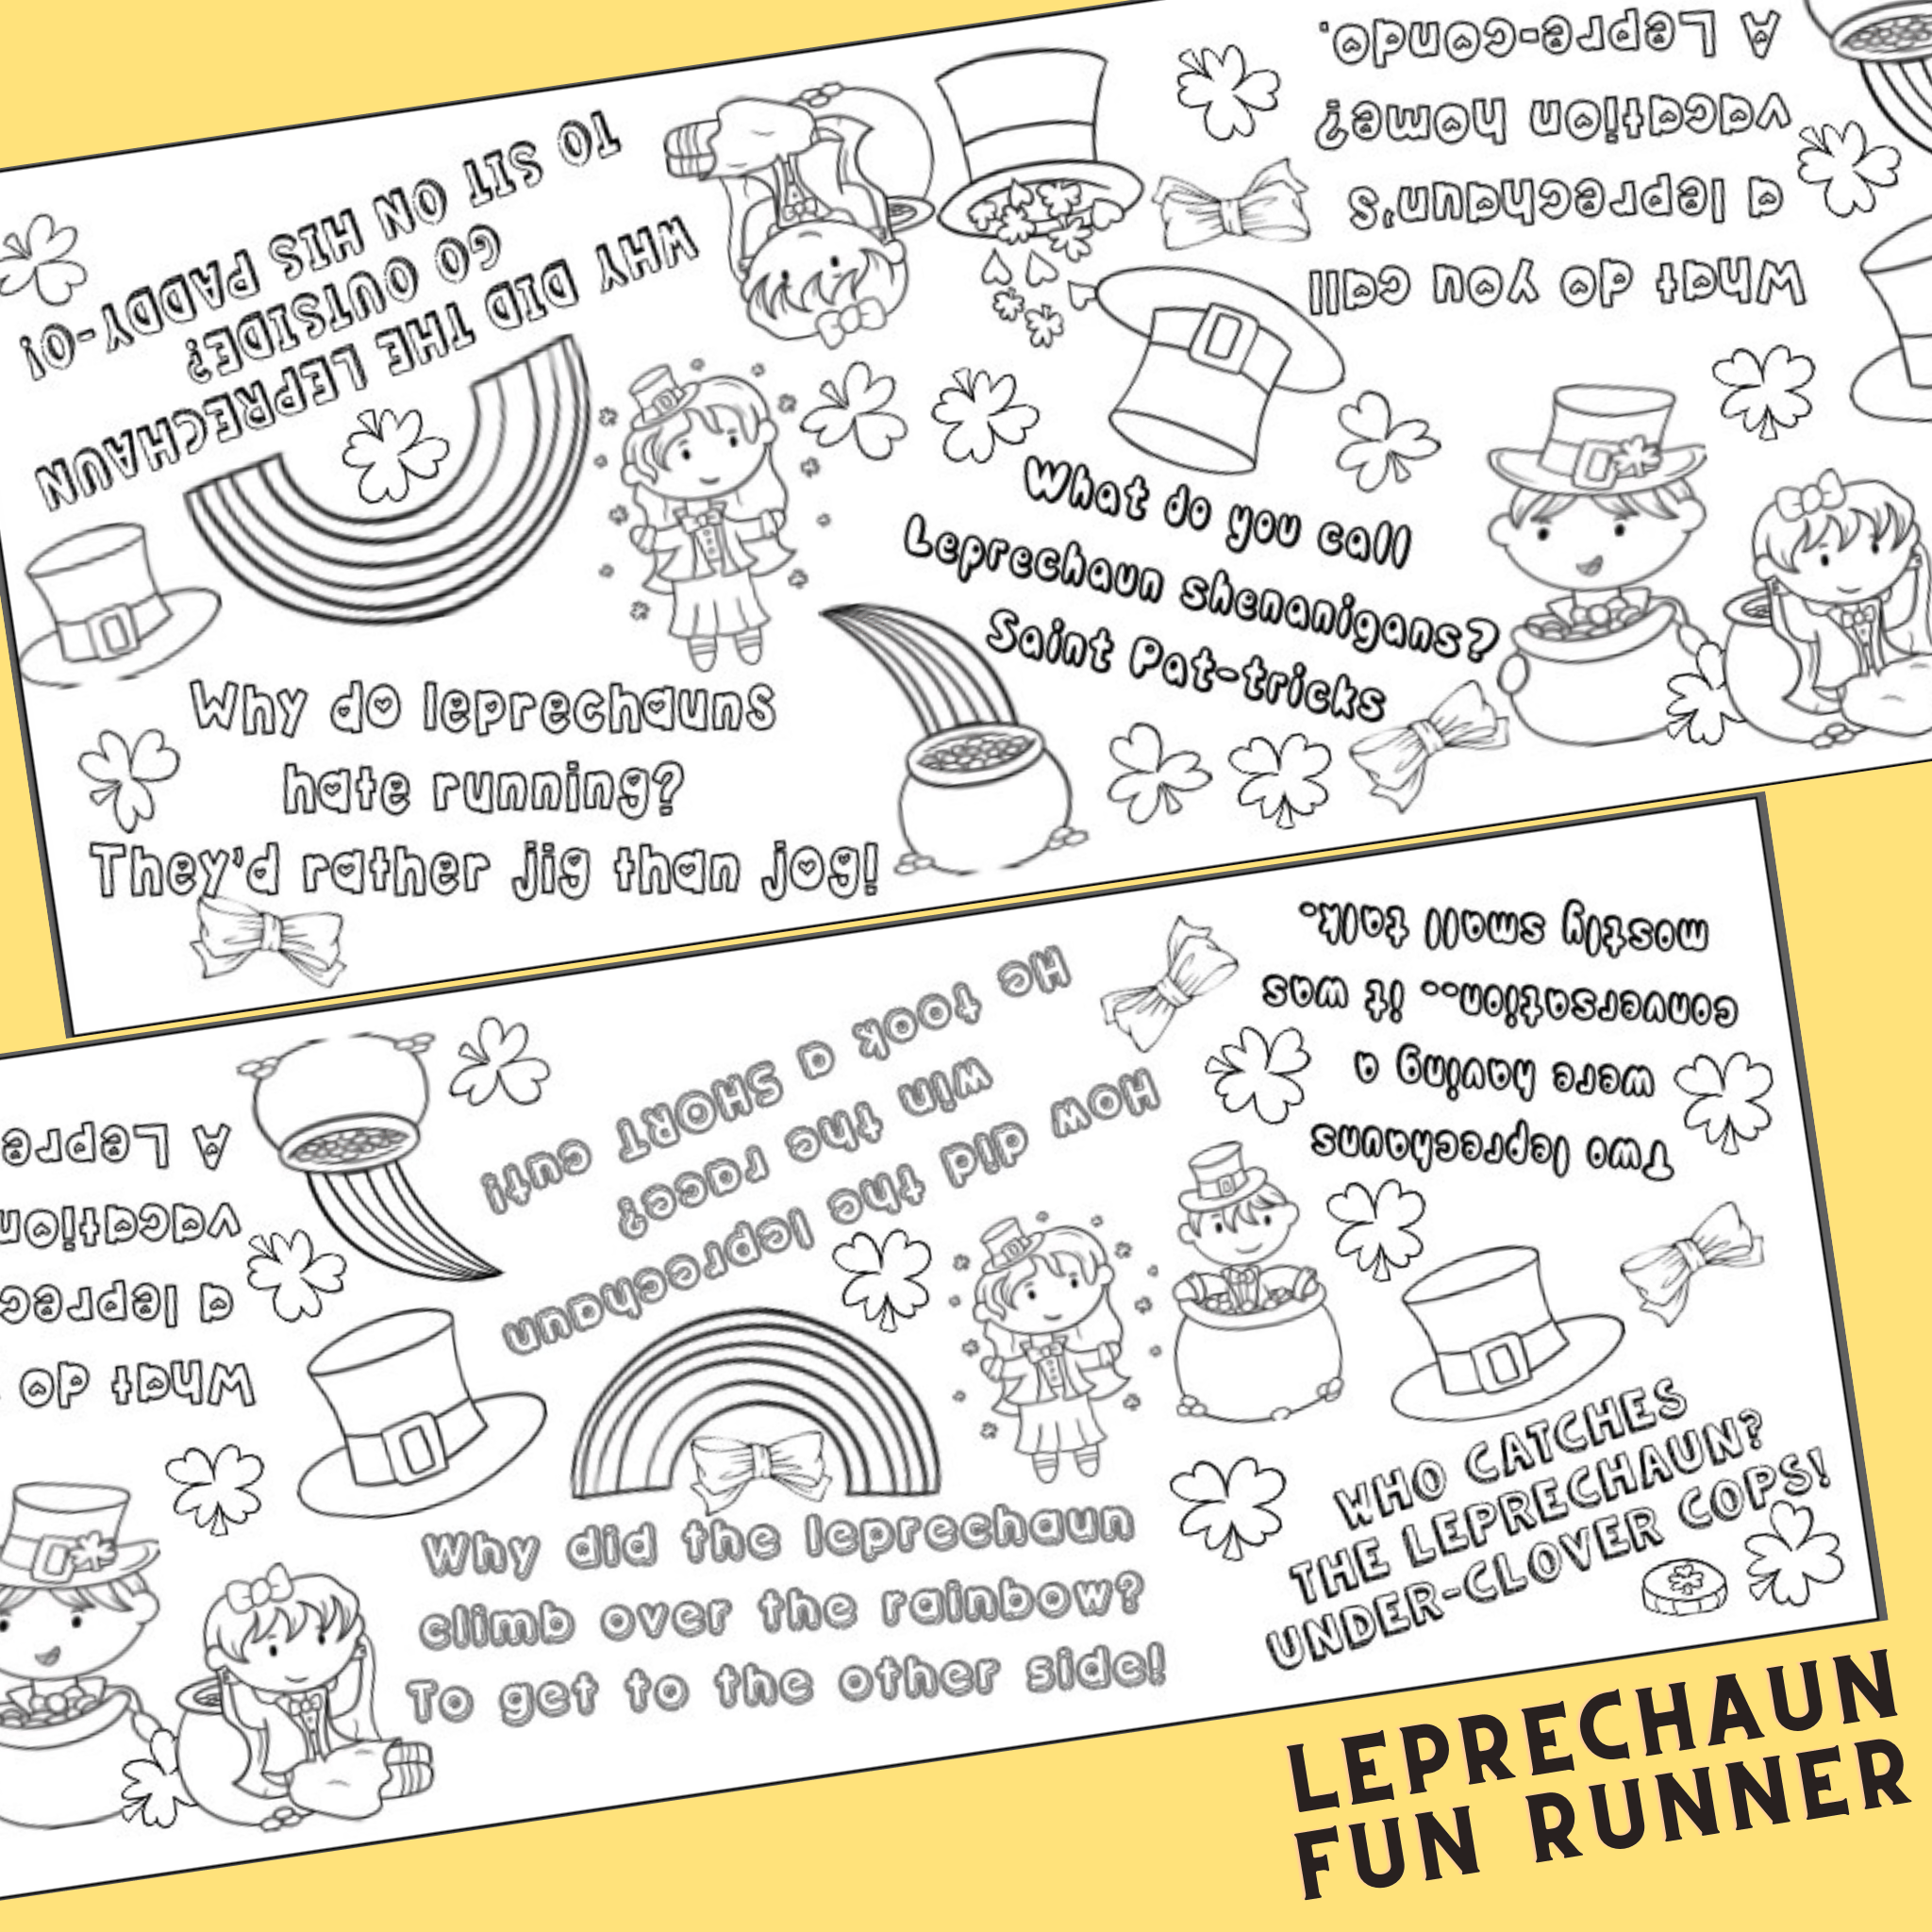 WHY DID THE LEPRECHAUN
GO OUTSIDE?
TO SIT ON HIS PADDY-O!
What do you call
a leprechaun's
vacation home?
A Lepre-condo.
What do you call
Leprechaun shenanigans?
Saint Pat-tricks
Why do leprechauns
hate running?
They'd rather jig than jog!
What do
a leprec
vacation
A Lepre
How did the leprechaun
win the race?
He took a SHORT cut!
Two leprechauns
were having a
conversation-- it was
mostly small talk.
Why did the leprechaun
climb over the rainbow?
To get to the other side!
WHO CATCHES
THE LEPRECHAUN?
UNDER-CLOVER COPS!
LEPRECHAUN
FUN RUNNER